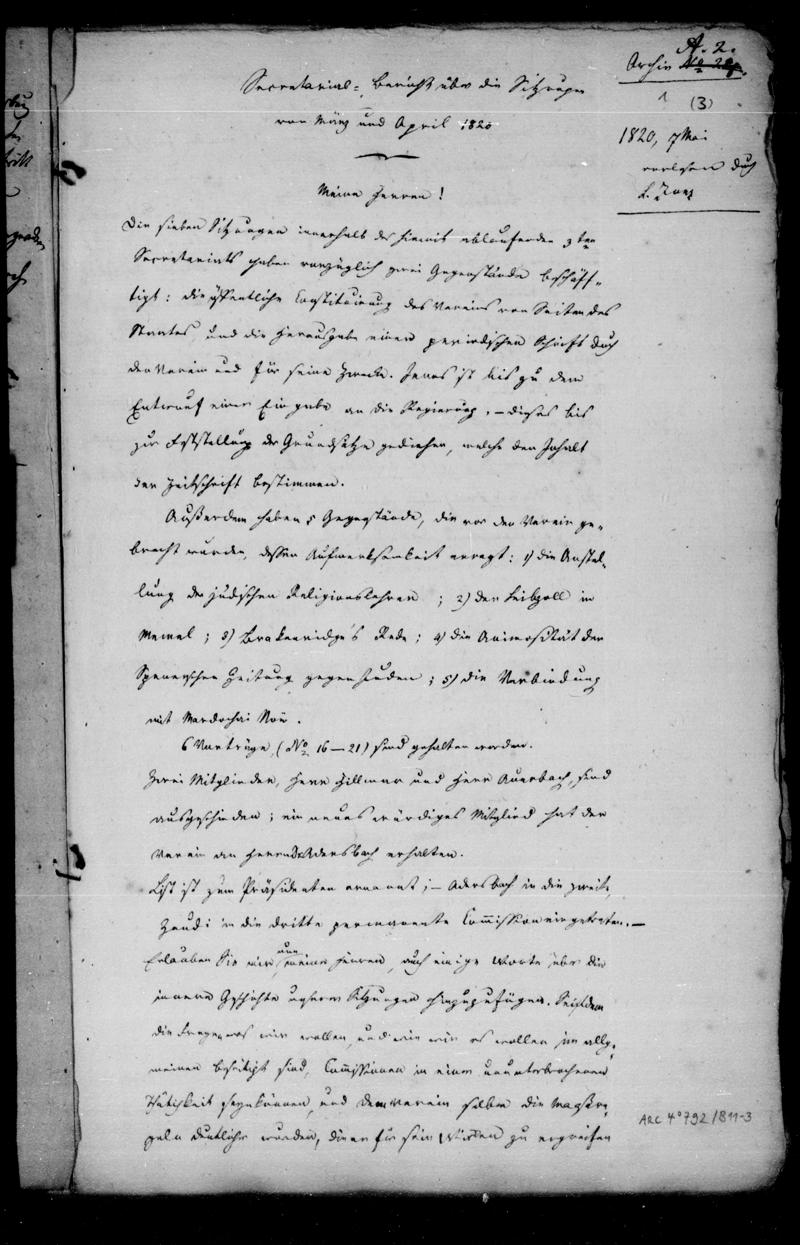 A. 2.
Archiv
1 (3)
1820, 7 Mai
verlesen durch
L. Zunz
Secretarial-Bericht über die Sitzungen
von März und April 1820
Meine Herren!
Die sieben Sitzungen innerhalb des hiemit ablaufenden 3ten
Secretariats haben vorzüglich zwei Gegenstände beschäf-
tigt: die öffentliche Constituirung des Vereins von Seiten des
Staates und die Herausgabe einer periodischen Schrift durch
den Verein und für seine Zwecke. Jenes ist bis zu dem
Entwurf einer Eingabe an die Regierung, – dieses bis
zur Feststellung der Grundsätze gediehen, welche den Inhalt
der Zeitschrift bestimmen.
Außerdem haben 5 Gegenstände, die vor den Verein ge-
bracht wurden, dessen Aufmerksamkeit erregt: 1) die Anstel-
lung der jüdischen Religionslehrer; 2) der Leibzoll in
Memel; 3) Brakenridge's Rede; 4) die Animosität der
Spenerschen Zeitung gegen Juden; 5) die Verbindung
mit Mardochai Noë.
6 Vorträge, (No. 16–21) sind gehalten worden.
Zwei Mitglieder, Herr Hillmar und Herr Auerbach, sind
ausgeschieden; ein neues würdiges Mitglied hat der
Verein an Herrn Dr Adersbach erhalten.
List ist zum Präsidenten ernannt; – Adersbach in die zweite,
in die dritte permanente Commission eingetreten. –
Erlauben Sie mir nun meine Herren, auch einige Worte über die
innere Geschichte unserer Sitzungen hinzuzufügen. Seitdem
die Fragen, was wir wollen und wie wir es wollen im allge-
meinen beseitigt sind, Commissionen in einer ununterbrochenen
Thätigkeit seyn können, und dem Verein selber die Maßre-
geln deutlicher wurden, die er für sein Wirken zu ergreifen
ARC 4° 792/B11-3